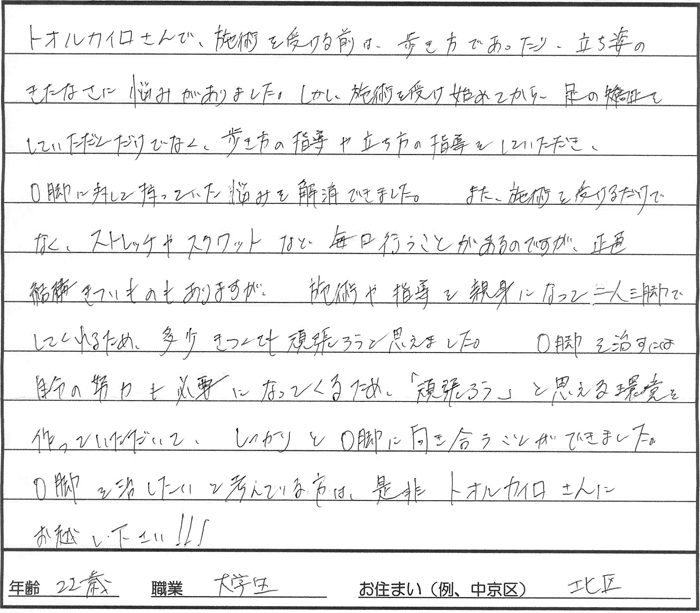 トオルカイロさんで、施術を受ける前は、歩き方であったり、立ち姿の
きたなさに悩みがありました。しかし、施術を受け始めてから、足の矯正を
していただくだけでなく、歩き方の指導や立ち方の指導をしていただき、
O脚に対して持っていた悩みを解消できました。 また、施術を受けるだけで
なく、ストレッチやスクワットなど、毎日行うことがあるのですが、正直
結構きついものもありますが、 施術や指導を親身になって二人三脚で
してくれるため、多少きつくても頑張ろうと思えました。 O脚を治すには
自分の努力も必要になってくるため、「頑張ろう」と思える環境を
作っていただいて、しっかりとO脚に向き合うことができました。
O脚を治したいと考えている方は、是非トオルカイロさんに
お越し下さい!!!
年齢 22歳 職業 大学生 お住まい(例、中京区) 北区